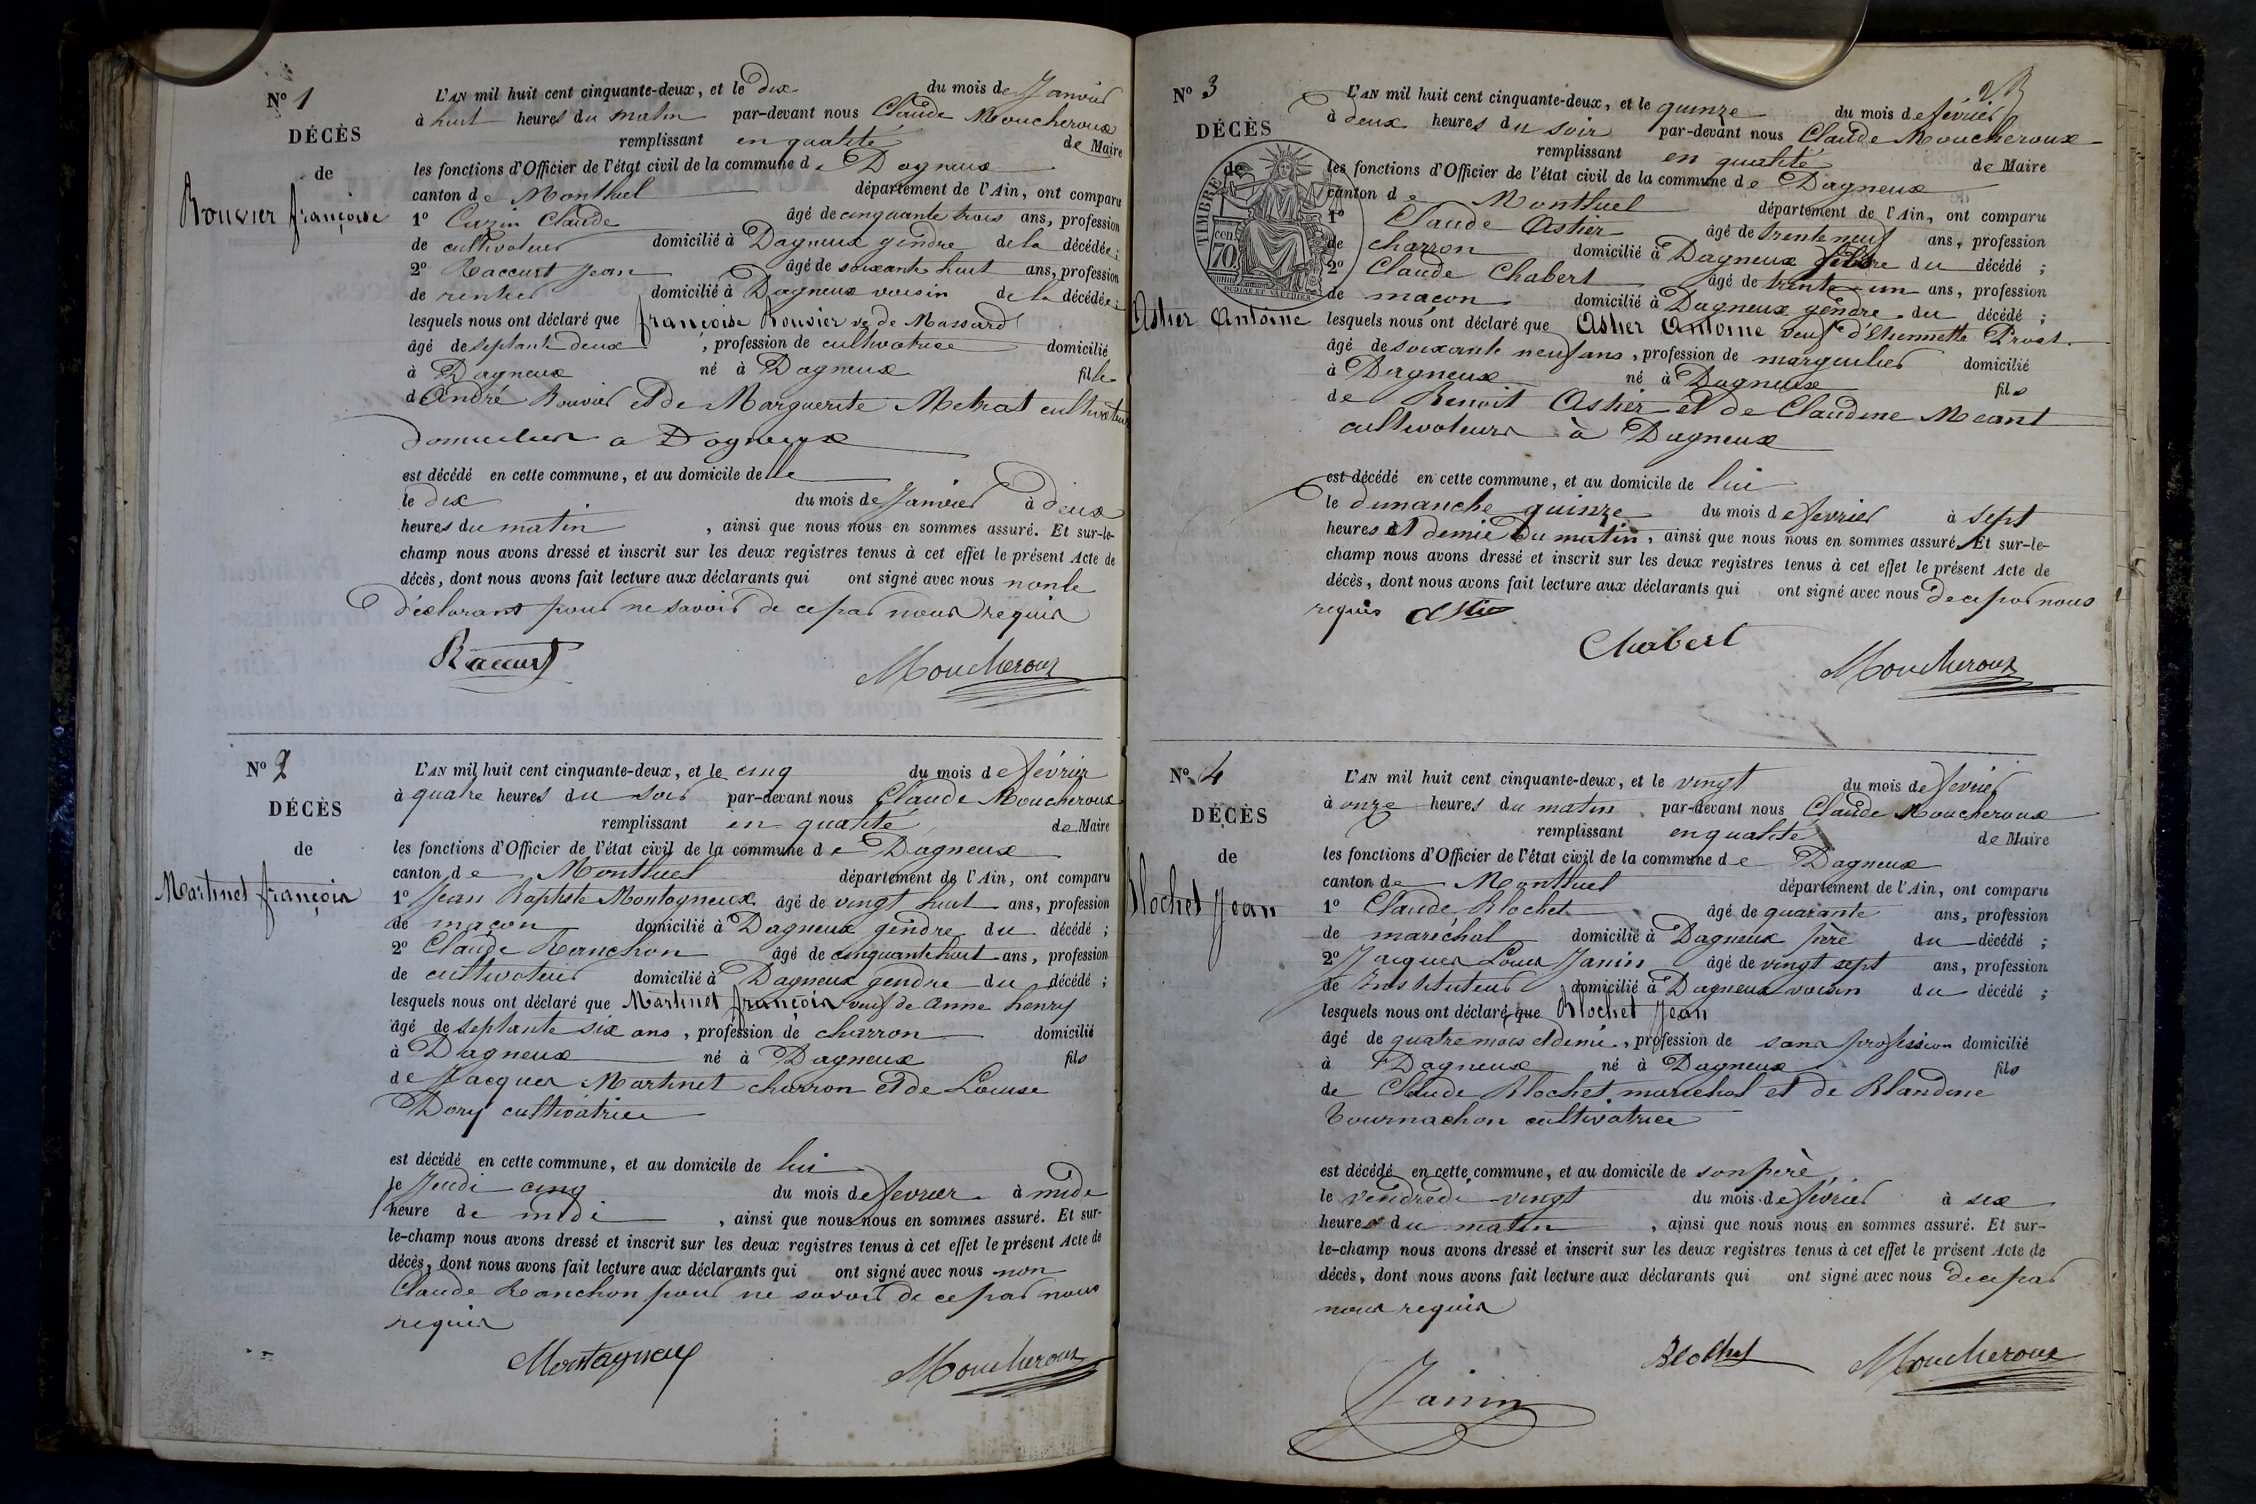 N° 1
DÉCÈS
de
Bouvier françoise
L'AN mil huit cent cinquante-deux, et le dix du mois de Janvier
à huit heures du matin par-devant nous Claude Moucheroux
remplissant en qualité de Maire
les fonctions d'Officier de l'état civil de la commune de Dagneux
canton de Montluel département de l'Ain, ont comparu
1° Cuzin Claude âgé de cinquante trois ans, profession
de cultivateur domicilié à Dagneux gendre de la décédée;
2° Raccurt Jean âgé de soixante huit ans, profession
de rentier domicilié à Dagneux voisin de la décédée;
lesquels nous ont déclaré que françoise Bouvier ve de Massard
âgé de septante deux, profession de cultivatrice domicilié
à Dagneux né à Dagneux fille
d'André Bouvier et de Marguerite Metrat cultivateurs
domiciliers a Dagneux
est décédé en cette commune, et au domicile delle
le dix du mois de Janvier à deux
heures du matin, ainsi que nous nous en sommes assuré. Et sur-le-
champ nous avons dressé et inscrit sur les deux registres tenus à cet effet le présent Acte de
décès, dont nous avons fait lecture aux déclarants qui ont signé avec nous non le
déclarant pour ne savoir de ce par nous requis
Raccurt
Moucheroux
N° 2
DÉCÈS
de
Martinet françois
L'AN mil huit cent cinquante-deux, et le cinq du mois de février
à quatre heures du soir par-devant nous Claude Moucheroux
remplissant en qualité de Maire
les fonctions d'Officier de l'état civil de la commune de Dagneux
canton de Montluel département de l'Ain, ont comparu
1° Jean Baptiste Montagneux âgé de vingt huit ans, profession
de maçon domicilié à Dagneux gendre du décédé;
2° Claude Ranchon âgé de cinquante huit ans, profession
de cultivateur domicilié à Dagneux gendre du décédé;
lesquels nous ont déclaré que Martinet françois veuf de Anne henry
âgé de septante six ans, profession de charron domicilié
à Dagneux né à Dagneux fils
de Jacques Martinet charron et de Louise
Dory cultivatrice
est décédé en cette commune, et au domicile de lui
le Jeudi cinq du mois de fevrier à midi
heure de midi, ainsi que nous nous en sommes assuré. Et sur-
le-champ nous avons dressé et inscrit sur les deux registres tenus à cet effet le présent Acte de
décès, dont nous avons fait lecture aux déclarants qui ont signé avec nous non
Claude Ranchon pour ne savoir de ce par nous
requis
Montagneux
Moucheroux
N° 3
DÉCÈS
de
TIMBRE
70 cen.
Astier Antoine
L'AN mil huit cent cinquante-deux, et le quinze du mois de février
à deux heures du soir par-devant nous Claude Moucheroux
remplissant en qualité de Maire
les fonctions d'Officier de l'état civil de la commune de Dagneux
canton de Montluel département de l'Ain, ont comparu
1° Claude Astier âgé de trente neuf ans, profession
de charron domicilié à Dagneux du décédé;
2° Claude Chabert âgé de trente un ans, profession
de maçon domicilié à Dagneux gendre du décédé;
lesquels nous ont déclaré que Astier Antoine veuf d'Etiennette Prost
âgé de soixante neuf ans, profession de marguilier domicilié
à Dagneux né à Dagneux fils
de Benoit Astier et de Claudine Meant
cultivateurs à Dagneux
est décédé en cette commune, et au domicile de lui
le dimanche quinze du mois de fevrier à sept
heures et demie du matin, ainsi que nous nous en sommes assuré. Et sur-le-
champ nous avons dressé et inscrit sur les deux registres tenus à cet effet le présent Acte de
décès, dont nous avons fait lecture aux déclarants qui ont signé avec nous de ce par nous
requis Astier
Chabert
Moucheroux
N° 4
DÉCÈS
de
Blochet Jean
L'AN mil huit cent cinquante-deux, et le vingt du mois de fevrier
à onze heures du matin par-devant nous Claude Moucheroux
remplissant en qualité de Maire
les fonctions d'Officier de l'état civil de la commune de Dagneux
canton de Montluel département de l'Ain, ont comparu
1° Claude Blochet âgé de quarante ans, profession
de maréchal domicilié à Dagneux père du décédé;
2° Jacques Louis Janin âgé de vingt sept ans, profession
de Instituteur domicilié à Dagneux voisin du décédé;
lesquels nous ont déclaré que Blochet Jean
âgé de quatre mois et demi, profession de sans profession domicilié
à Dagneux né à Dagneux fils
de Claude Blochet marechal et de Blandine
Tournachon cultivatrice
est décédé en cette commune, et au domicile de son père
le vendredi vingt du mois de février à six
heures du matin, ainsi que nous nous en sommes assuré. Et sur-
le-champ nous avons dressé et inscrit sur les deux registres tenus à cet effet le présent Acte de
décès, dont nous avons fait lecture aux déclarants qui ont signé avec nous de ce par
nous requis
Blochet
Moucheroux
Janin